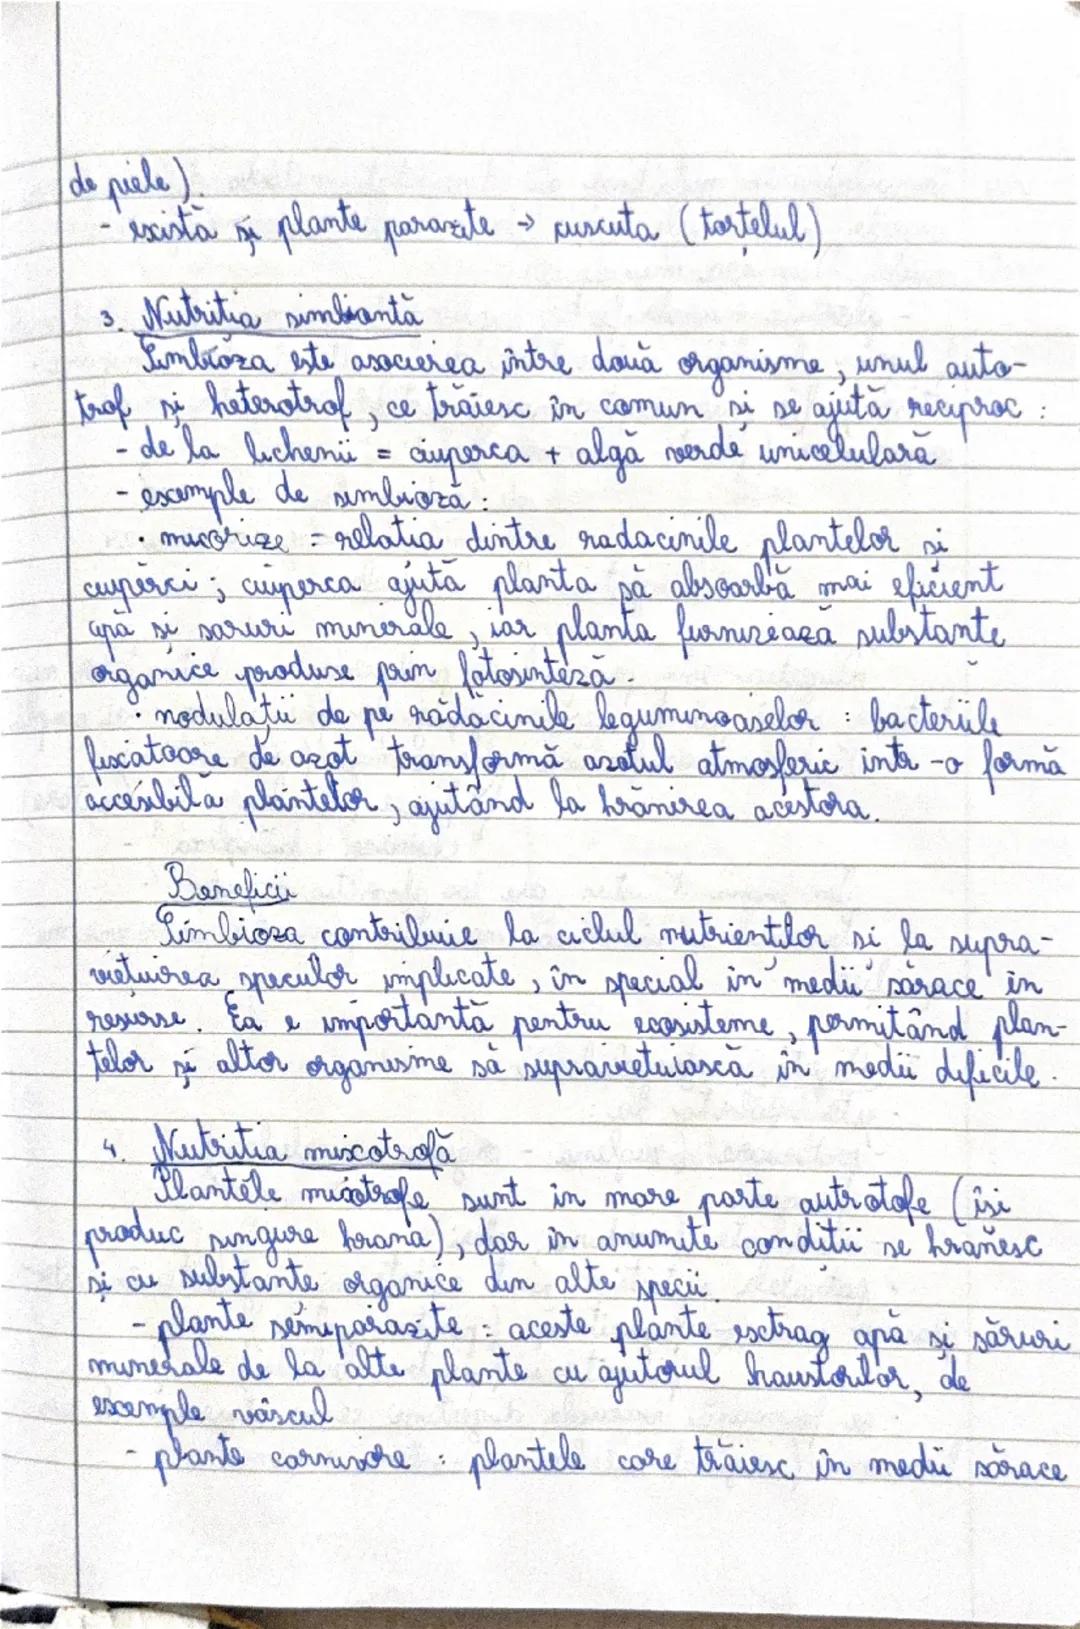 de piele).
- există și plante parazite → cuscuta (torțelul)
3. Nutritia simbiontă
Simbioza este asocierea între două organisme, unul auto-
trof si heterotrof, ce trăiesc în comun si se ajută reciproc:
- de la lichenii = ciuperca + algă verde unicelulară
- exemple de simbioză:
· micorize = relatia dintre radacinile plantelor si
ciuperci; ciuperca ajută planta să absoarbă mai eficient
apă si saruri minerale, iar planta furnizează substante
organice produse prin fotosinteză.
· nodulații de pe rădăcinile leguminoaselor: bacteriile
fixatoare de azot transformă azotul atmosferic intr-o formă
accesibilă plantelor, ajutând la hrănirea acestora.
Beneficii
Simbioza contribuie la ciclul nutrientilor si la supra-
viețuirea speciilor implicate, în special in medii sărace în
resurse. Ea e importantă pentru ecosisteme, permitând plan-
telor și altor organisme să supraviețuiască în medii dificile.
4. Nutritia mixotrofă
Plantele mixotrofe sunt in mare parte autrotofe (îsi
produc singure hrana), dar în anumite conditii se hrănesc
și cu substante organice din alte specii.
- plante semiparazite: aceste plante extrag apă si săruri
minerale de la alte plante cu ajutorul haustorilor, de
exemple vâscul
- plante carnivore: plantele care trăiesc în medii sărace